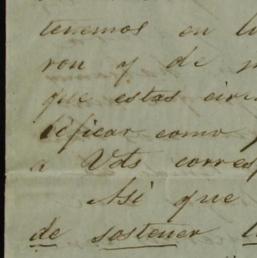 tenemos en l
ron y de
que estas cir
tificar como
a Vds corresp
Asi que
de sostener l